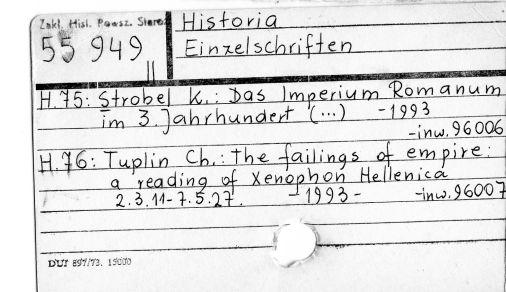 Zakł. Hist. Powsz. Staroż
Historia
55 949
II
Einzelschriften
H.75: Strobel K.: Das Imperium Romanum
im 3. Jahrhundert (...) - 1993
-inw. 96006
H.76: Tuplin Ch.: The failings of empire:
a reading of Xenophon Hellenica
2.3.11-7.5.27. - 1993 - -inw. 96007
DUJ 897/73. 15000